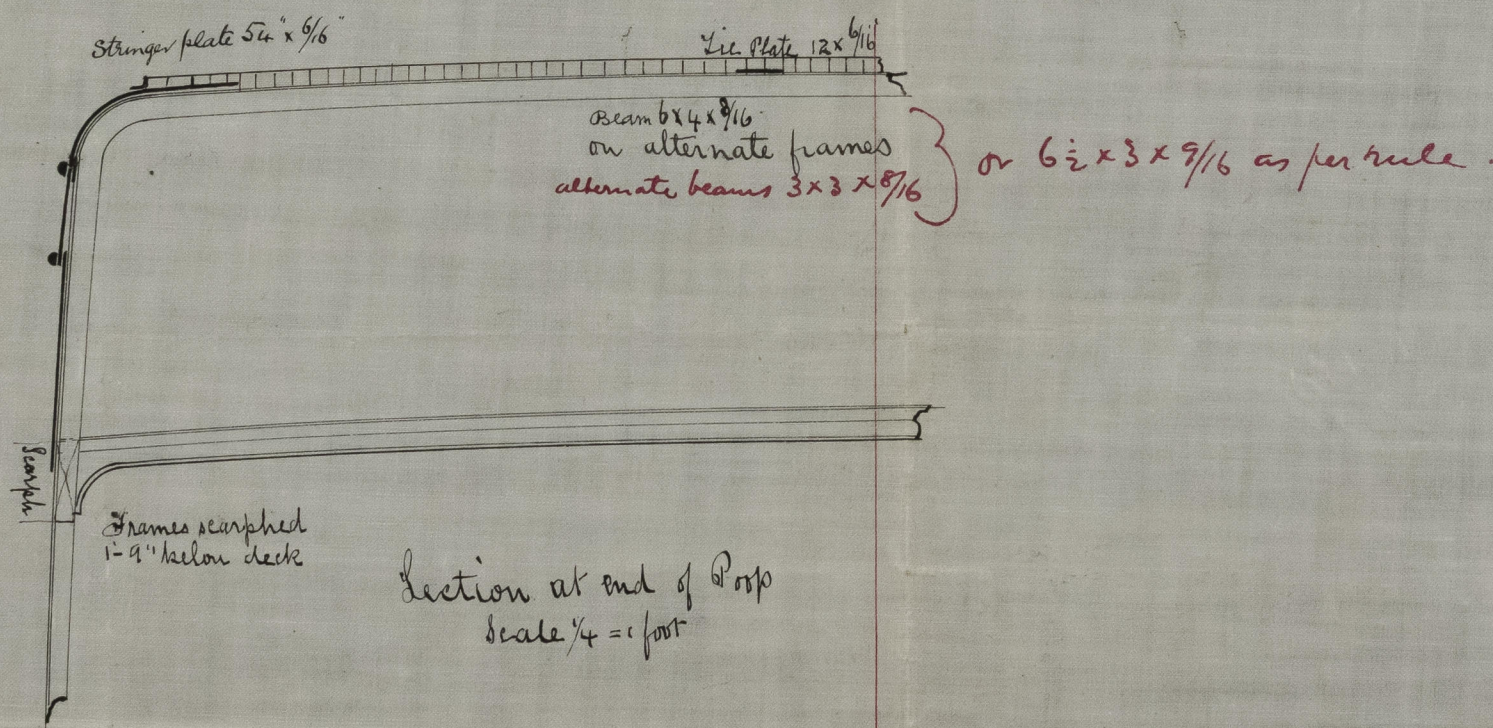 Stringer plate 54" x 6/16"
Tie Plate 12 x 6/16
Beam 6 x 4 x 8/16
on alternate frames
alternate beams 3 x 3 x 8/16
or 6 1/2 x 3 x 9/16 as per rule.
Scarph
Frames scarphed
1'-9" below deck
Section at end of Poop
Scale 1/4 = 1 foot